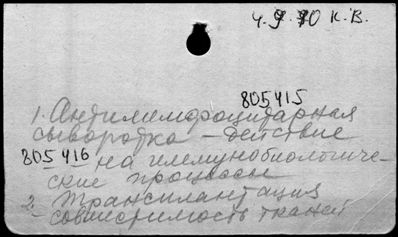 4.9.70 К.В.
805415
1. Антилимфоцитарная
сыворотка – действие
805416
на иммунобиологиче-
ские процессы
2. Трансплантация
совместимость тканей